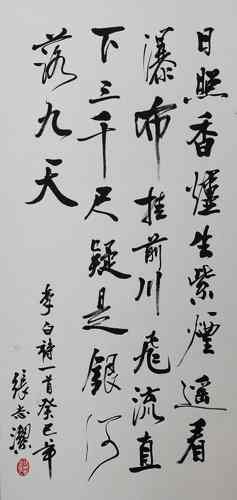 日照香爐生紫煙遥看
瀑布挂前川飛流直
下三千尺疑是銀河
落九天
李白詩一首癸巳年
張志潔